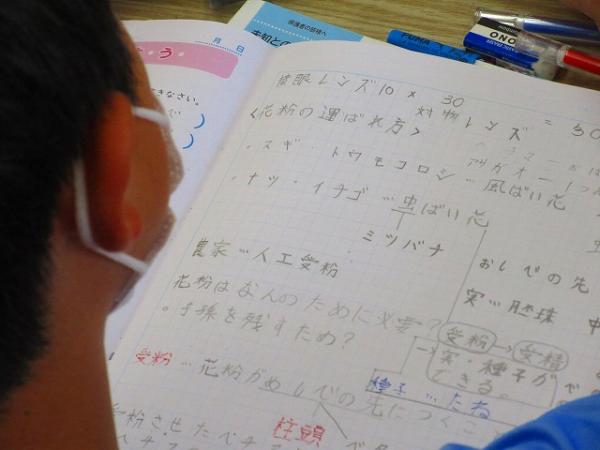 月 日
う
きなさい。
保護者の皆様へ
MONO
接眼レンズ10 × 対物30レンズ = 30
〈花粉の運ばれ方〉
・スギ・トウモコロシ…風ばい花
・ナツ・イチゴ…虫ばい花
ミツバナ
農家…人工受粉
おしべの先
実…胚珠 中
花粉はなんのために必要?
・子孫を残すため?
受粉→受精
→実・種子が
できる。
種子…たね
受粉…花粉がめしべの先につくこと
柱頭